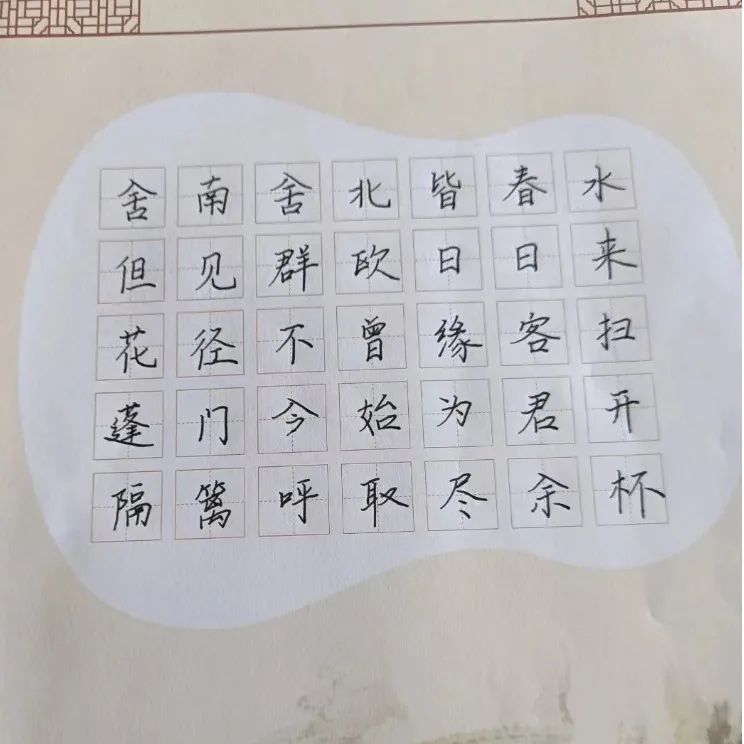 舍南舍北皆春水
但见群欧日日来
花径不曾缘客扫
蓬门今始为君开
隔篱呼取尽余杯